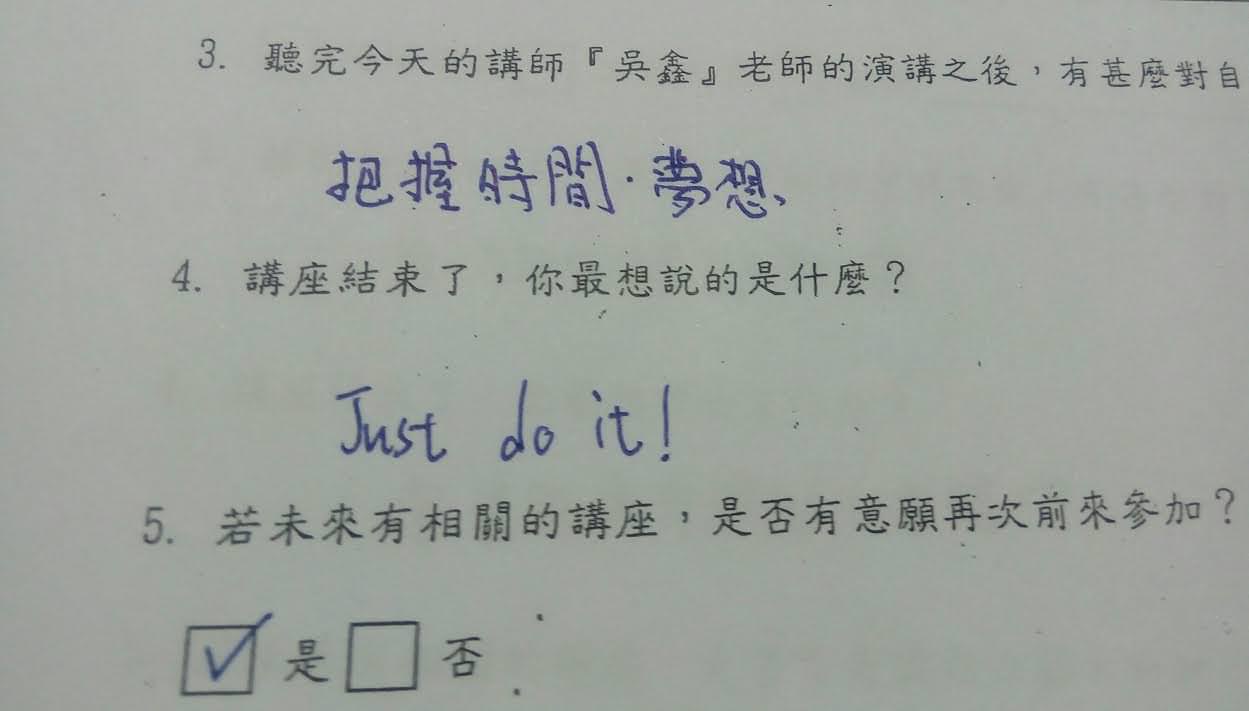 3. 聽完今天的講師『吳鑫』老師的演講之後，有甚麼對自
把握時間·夢想、
4. 講座結束了，你最想說的是什麼？
Just do it!
5. 若未來有相關的講座，是否有意願再次前來參加？
☑是□否